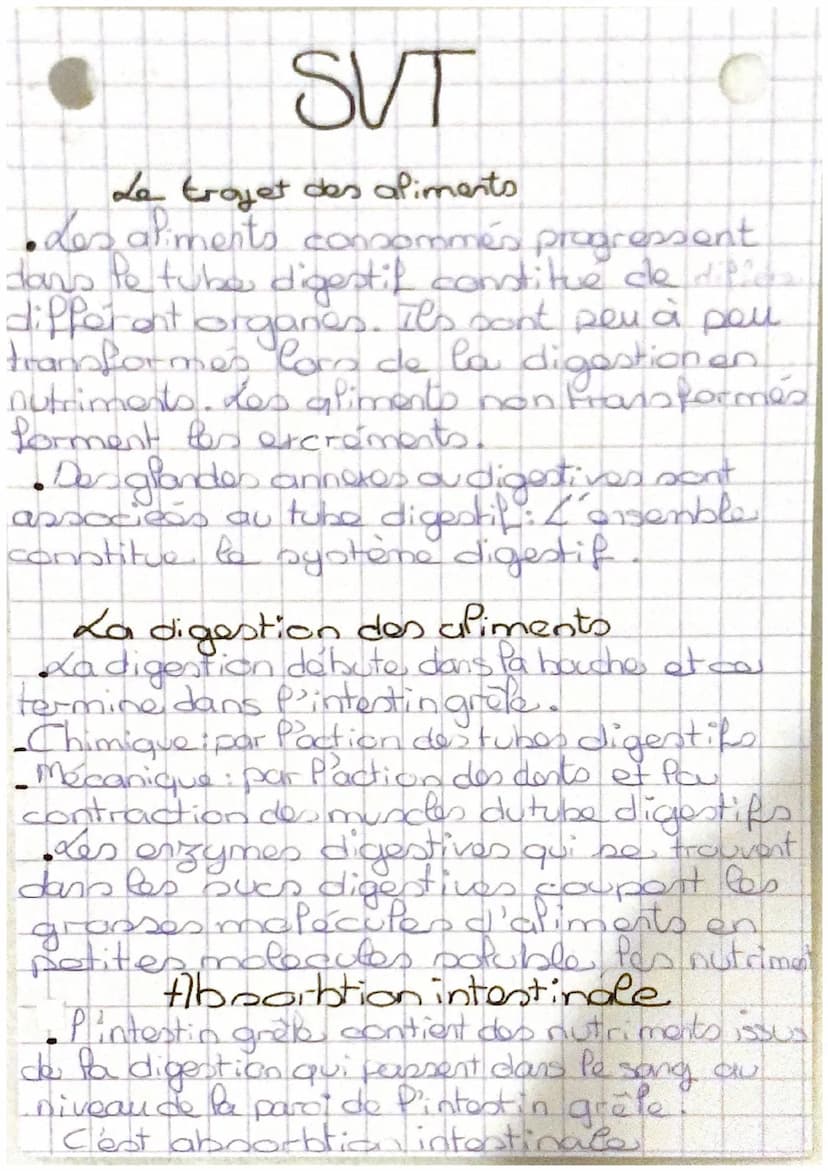 SVT
Le trajet des aliments
. Les aliments consommés progressent
dans le tube digestif constitué de
différent organes. Ils sont peu à peu
transformés lors de la digestion en
nutriments. Les aliments non transformés
forment les excréments.
. Des glandes annexes ou digestives sont
associées au tube digestif : L'ensemble
constitue le système digestif.
La digestion des aliments
. La digestion débute dans la bouche et ce
termine dans l'intestin grêle.
- Chimique : par l'action des tubes digestifs
- Mécanique : par l'action des dents et la
contraction des muscles du tube digestifs
. Les enzymes digestives qui se trouvent
dans les sucs digestives coupent les
grosses molécules d'aliments en
petites molecules soluble, les nutriment
Absorbtion intestinale
. l'intestin grêle contient des nutriments issus
de la digestion qui passent dans le sang au
niveau de la paroi de l'intestin grêle.
C'est absorbtion intestinale